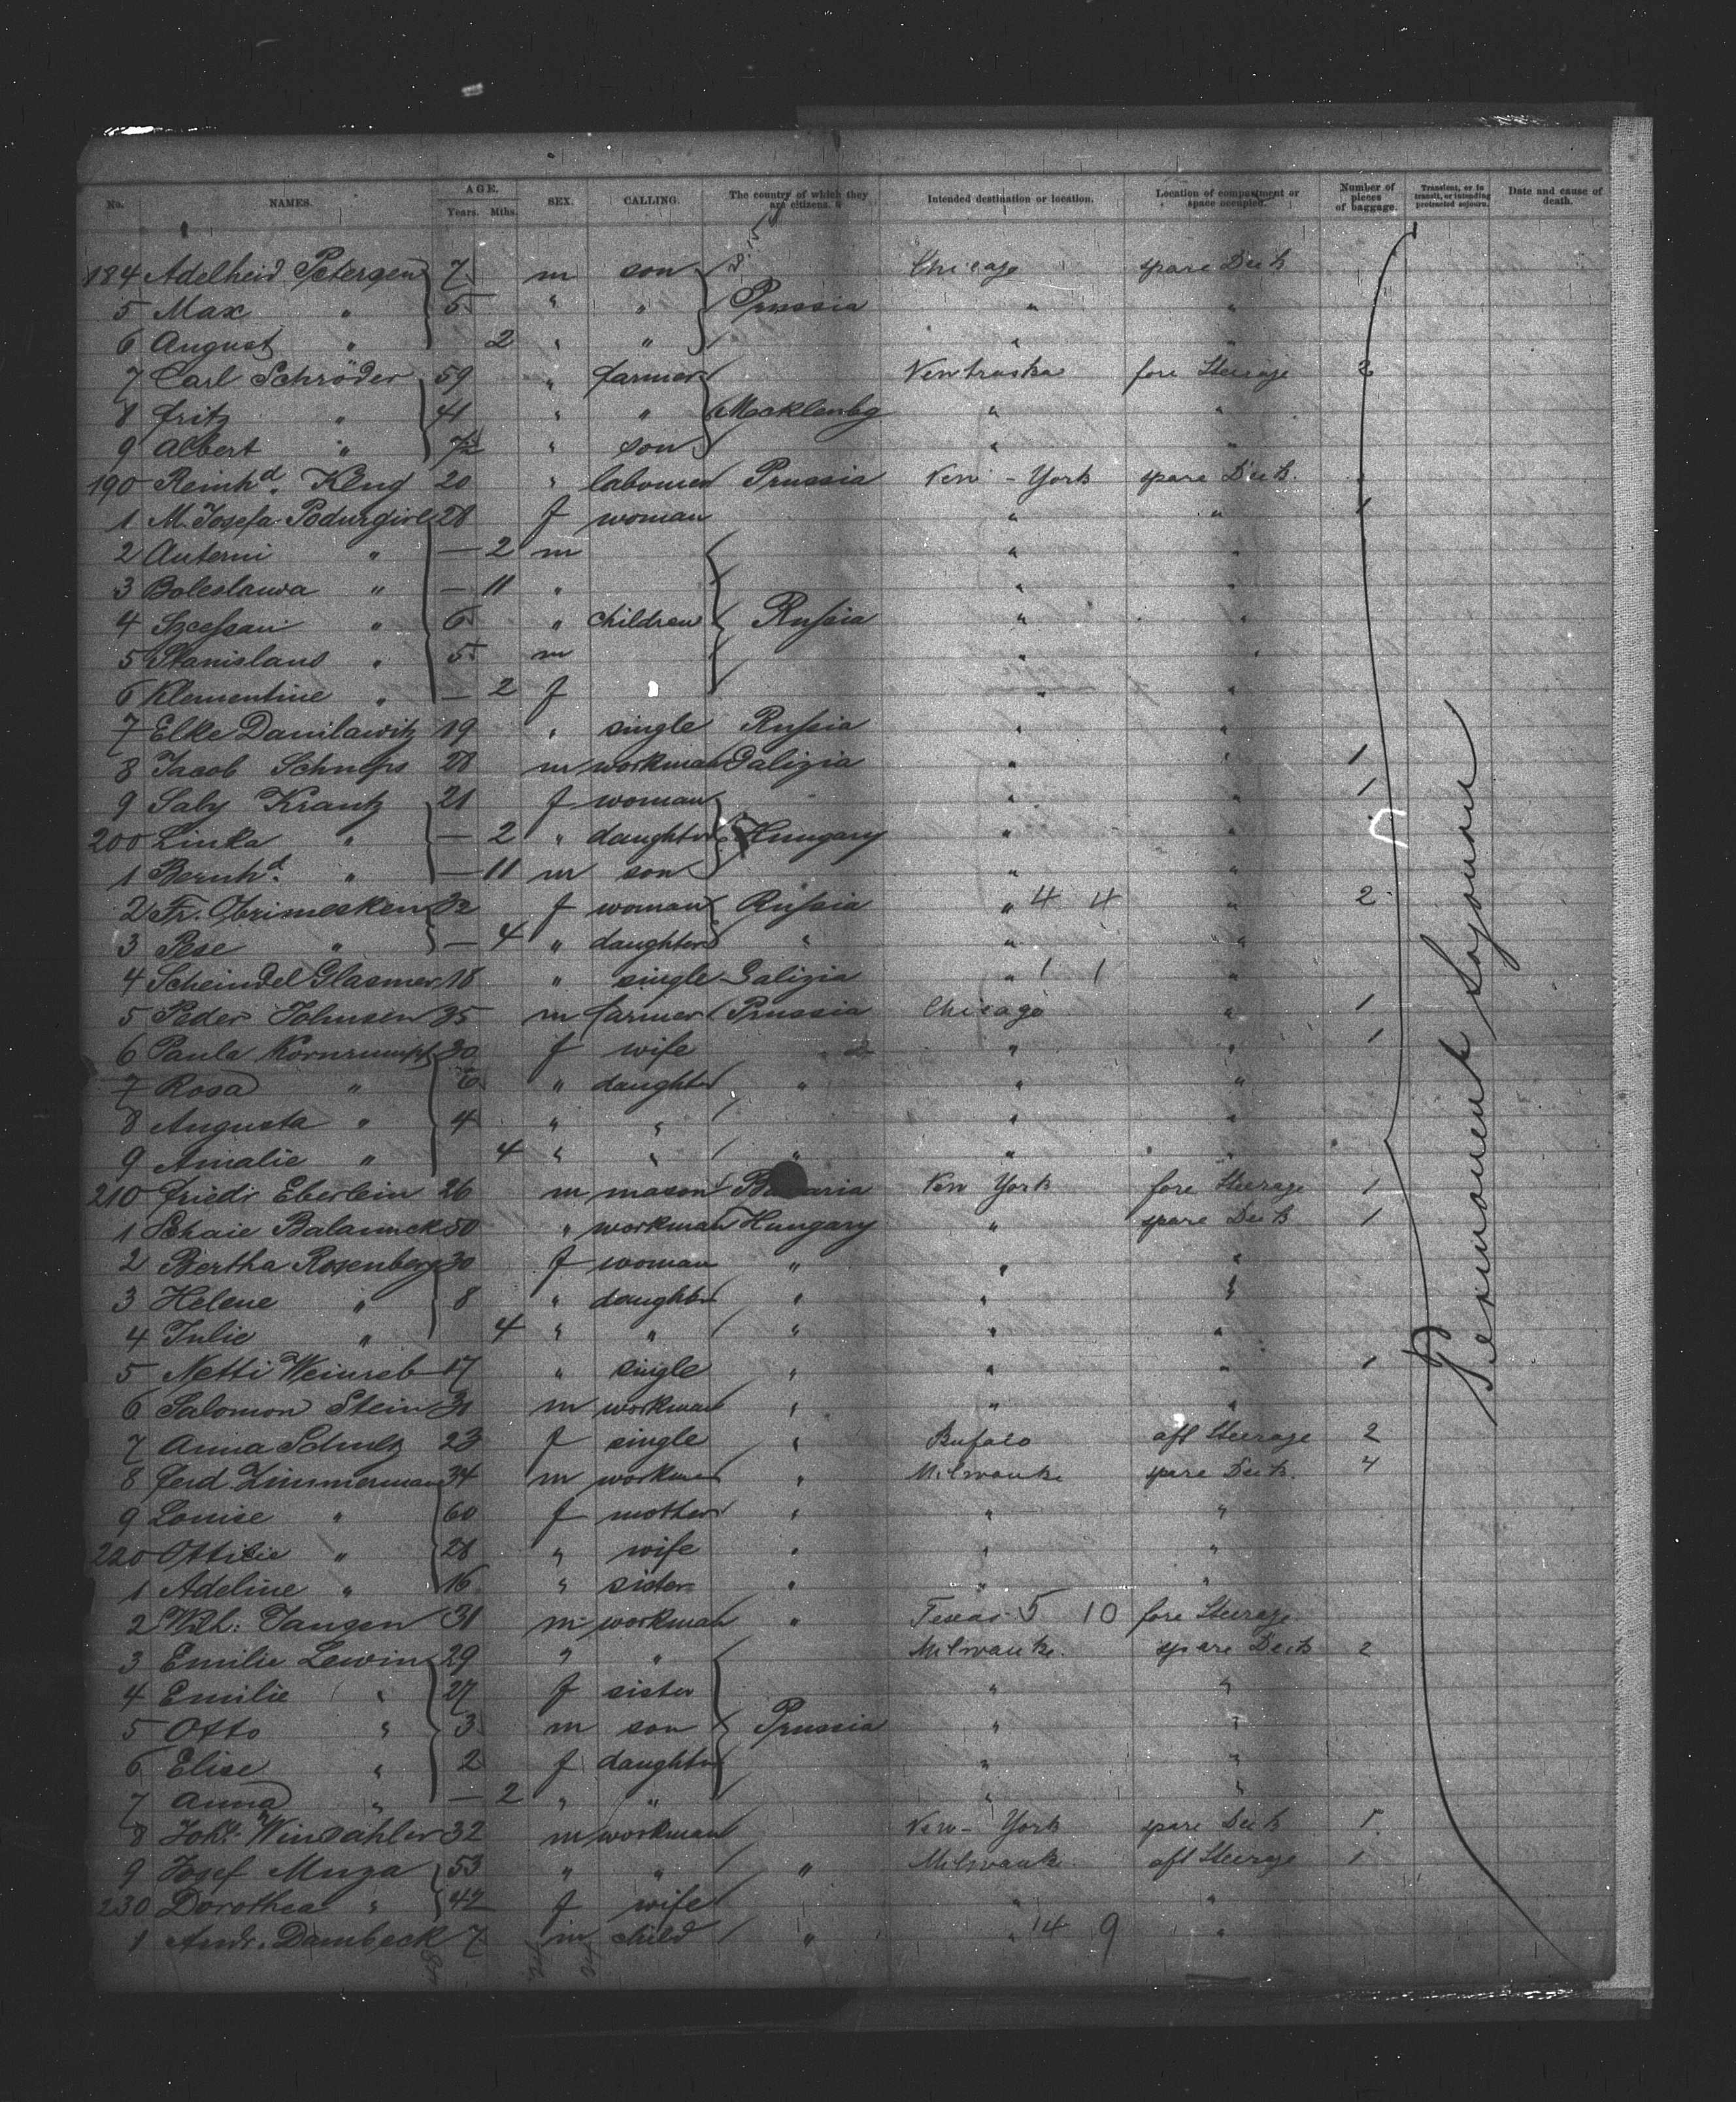 No. NAMES. AGE. Years. Mths. SEX. CALLING. The country of which they are citizens. Intended destination or location. Location of compartment or space occupied. Number of pieces of baggage. Transient, or in transit, or intending protracted sojourn. Date and cause of death.
184 Adelheid Petersen 7 m son Chicago spare Deck
5 Max " 5 " " Prussia " "
6 August " 2 " " " "
7 Carl Schröder 59 " farmer fore Steerage 2
8 Fritz " 41 " " Mecklenbg " "
9 Albert " " son " "
190 Reinhd. Klug 20 " Prussia New-York spare Deck
1 M. Josefa 28 f woman " " 1
2 " — 2 m " "
3 Boleslawa " — 11 " " "
4 " 6 " children Russia " "
5 Stanislaus " 5 m " "
6 Klementine " — 2 f " "
7 Elke Danilawitz 19 " single Russia " "
8 Jacob 28 m workman Galizia " " 1
9 Saly Krantz 21 f woman " " 1
200 Linka " — 2 " daughter Hungary " "
1 Bernhd. " — 11 m son " "
2 Fr. 32 f woman Russia " 4 4 " 2
3 Pese " — 4 " daughter " " "
4 Scheindel Glasmer 18 " single Galizia " 1 1 "
5 Peder Johnsen 35 m farmer Prussia Chicago " 1
6 Paula Kornrumpf 30 f wife " " " 1
7 Rosa " 6 " daughter " " "
8 Augusta " 4 " " " "
9 Amalie " 4 " " " " "
210 Friedr Eberlein 26 m mason Bavaria New York fore Steerage 1
1 Schaie 50 " workman Hungary " spare Deck 1
2 Bertha Rosenberg 30 f woman " " "
3 Helene " 8 " daughter " " "
4 Julie " 4 " " " " "
5 Netti Weinreb 17 " single " " " 1
6 Salomon Stein 31 m workman " " "
7 Anna Schultz 23 f single " Bufalo aft Steerage 2
8 Ferd. Zimmermann 34 m workman " Milwauke spare Deck. 4
9 Louise " 60 f mother " " "
220 Ottilie " 28 " wife " " "
1 Adeline " 16 " sister " " "
2 Wilh: Jansen 31 m workman " Texas 5 10 fore Steerage
3 Emilie Lewin 29 " " Milwauke. spare Deck 2
4 Emilie " 27 f sister " "
5 Otto " 3 m son Prussia " "
6 Elise " 2 f daughter " "
7 Anna " — 2 " " " "
8 32 m workman New-York spare Deck 1
9 Josef Muza 53 " " " Milwauke aft Steerage 1
230 Dorothea " 42 f wife " "
1 Andr. Dambeck 7 m child " " 14 9 "
Permanent Sojourn